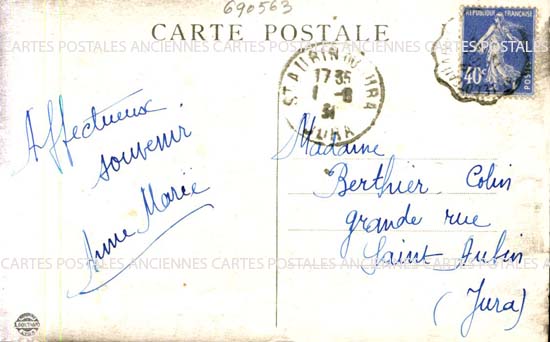 690563
CARTE POSTALE
CARTES POSTALES ANCIENNES CARTES POSTALES ANCIENNES CARTES POSTALES ANCIENNES
REPUBLIQUE FRANÇAISE
40c
ST AUBIN DU JURA
17 35
1 -8
31
JURA
Affectueux
souvenir
Anne Marie
Madame
Berthier Colin
grande rue
Saint Aubin
(Jura)
CARTES POSTALES ANCIENNES CARTES POSTALES ANCIENNES CARTES POSTALES ANCIENNES